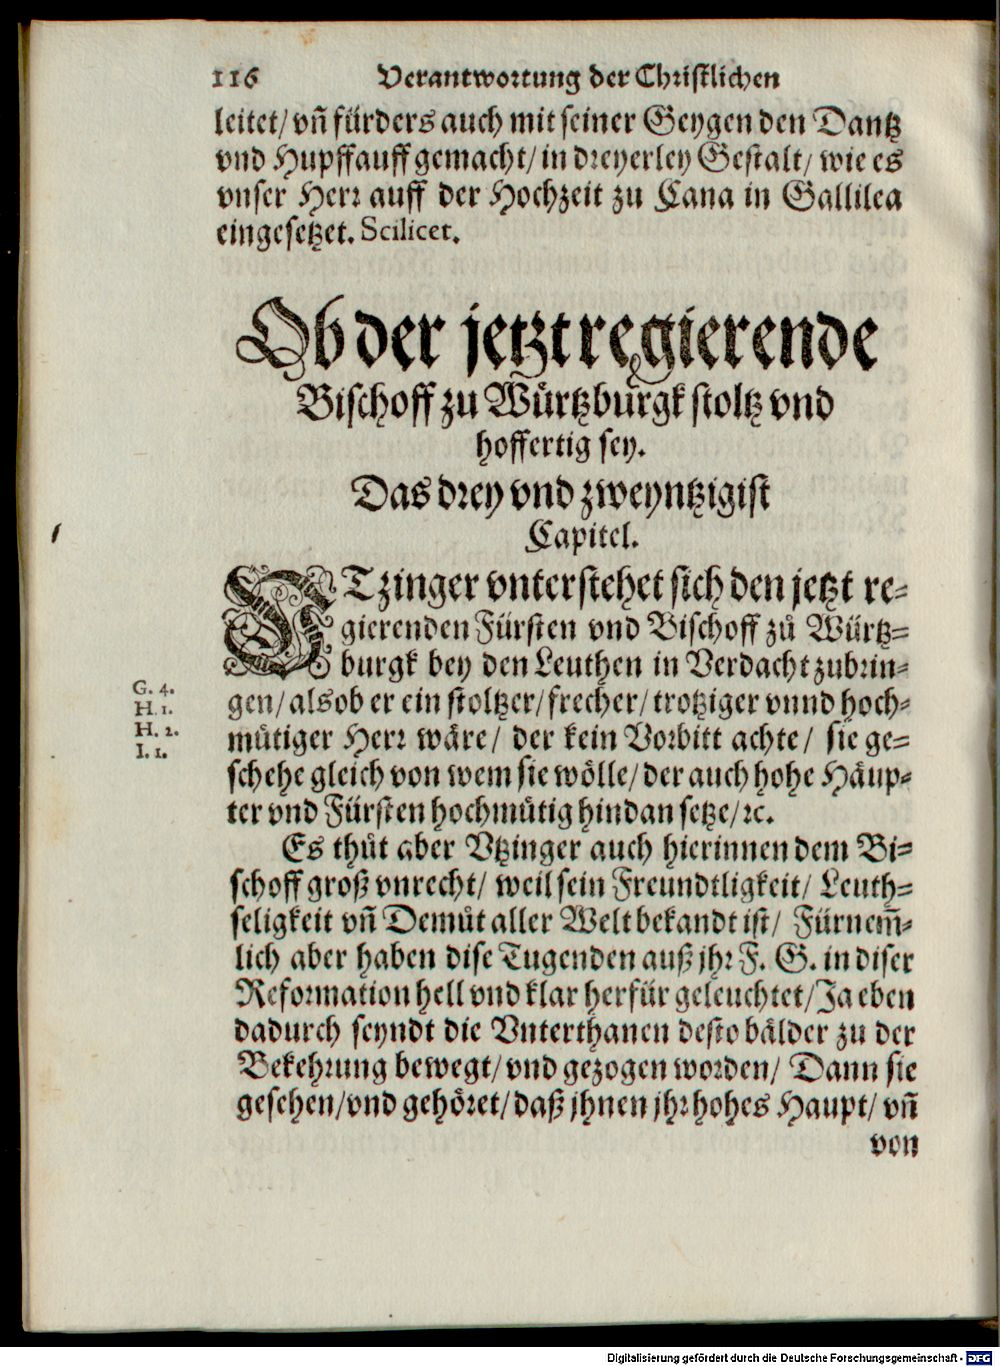 116 Verantwortung der Christlichen
leitet/ vñ fürders auch mit seiner Geygen den Dantz
vnd Hupffauff gemacht/ in dreyerley Gestalt/ wie es
vnser Herr auff der Hochzeit zu Cana in Gallilea
eingesetzet. Scilicet.
Ob der jetzt regierende
Bischoff zu Würtzburgk stoltz vnd
hoffertig sey.
Das drey vnd zweyntzigist
Capitel.
VTzinger vnterstehet sich den jetzt re-
gierenden Fürsten vnd Bischoff zů Würtz-
burgk bey den Leuthen in Verdacht zubrin-
G. 4.
gen/ als ob er ein stoltzer/ frecher/ trotziger vnnd hoch-
H. 1.
mütiger Herr wäre/ der kein Vorbitt achte/ sie ge-
H. 2.
I. 1.
schehe gleich von wem sie wölle/ der auch hohe Häup-
ter vnd Fürsten hochmütig hindan setze/ ꝛc.
Es thůt aber Vtzinger auch hierinnen dem Bi-
schoff groß vnrecht/ weil sein Freundtligkeit/ Leuth-
seligkeit vñ Demůt aller Welt bekandt ist/ Fürnem̃-
lich aber haben dise Tugenden auß jhr F. G. in diser
Reformation hell vnd klar herfür geleuchtet/ Ja eben
dadurch seyndt die Vnterthanen desto bälder zu der
Bekehrung bewegt/ vnd gezogen worden/ Dann sie
gesehen/ vnd gehöret/ daß jhnen jhr hohes Haupt/ vñ
von
Digitalisierung gefördert durch die Deutsche Forschungsgemeinschaft - DFG